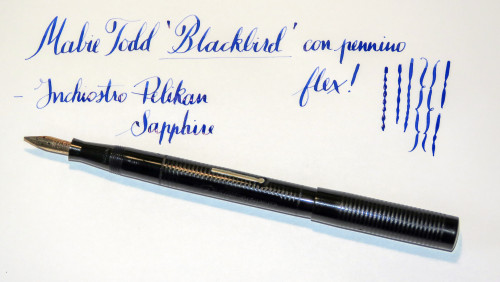 Mabie Todd 'Blackbird' con pennino
flex!
- Inchiostro Pelikan
Sapphire